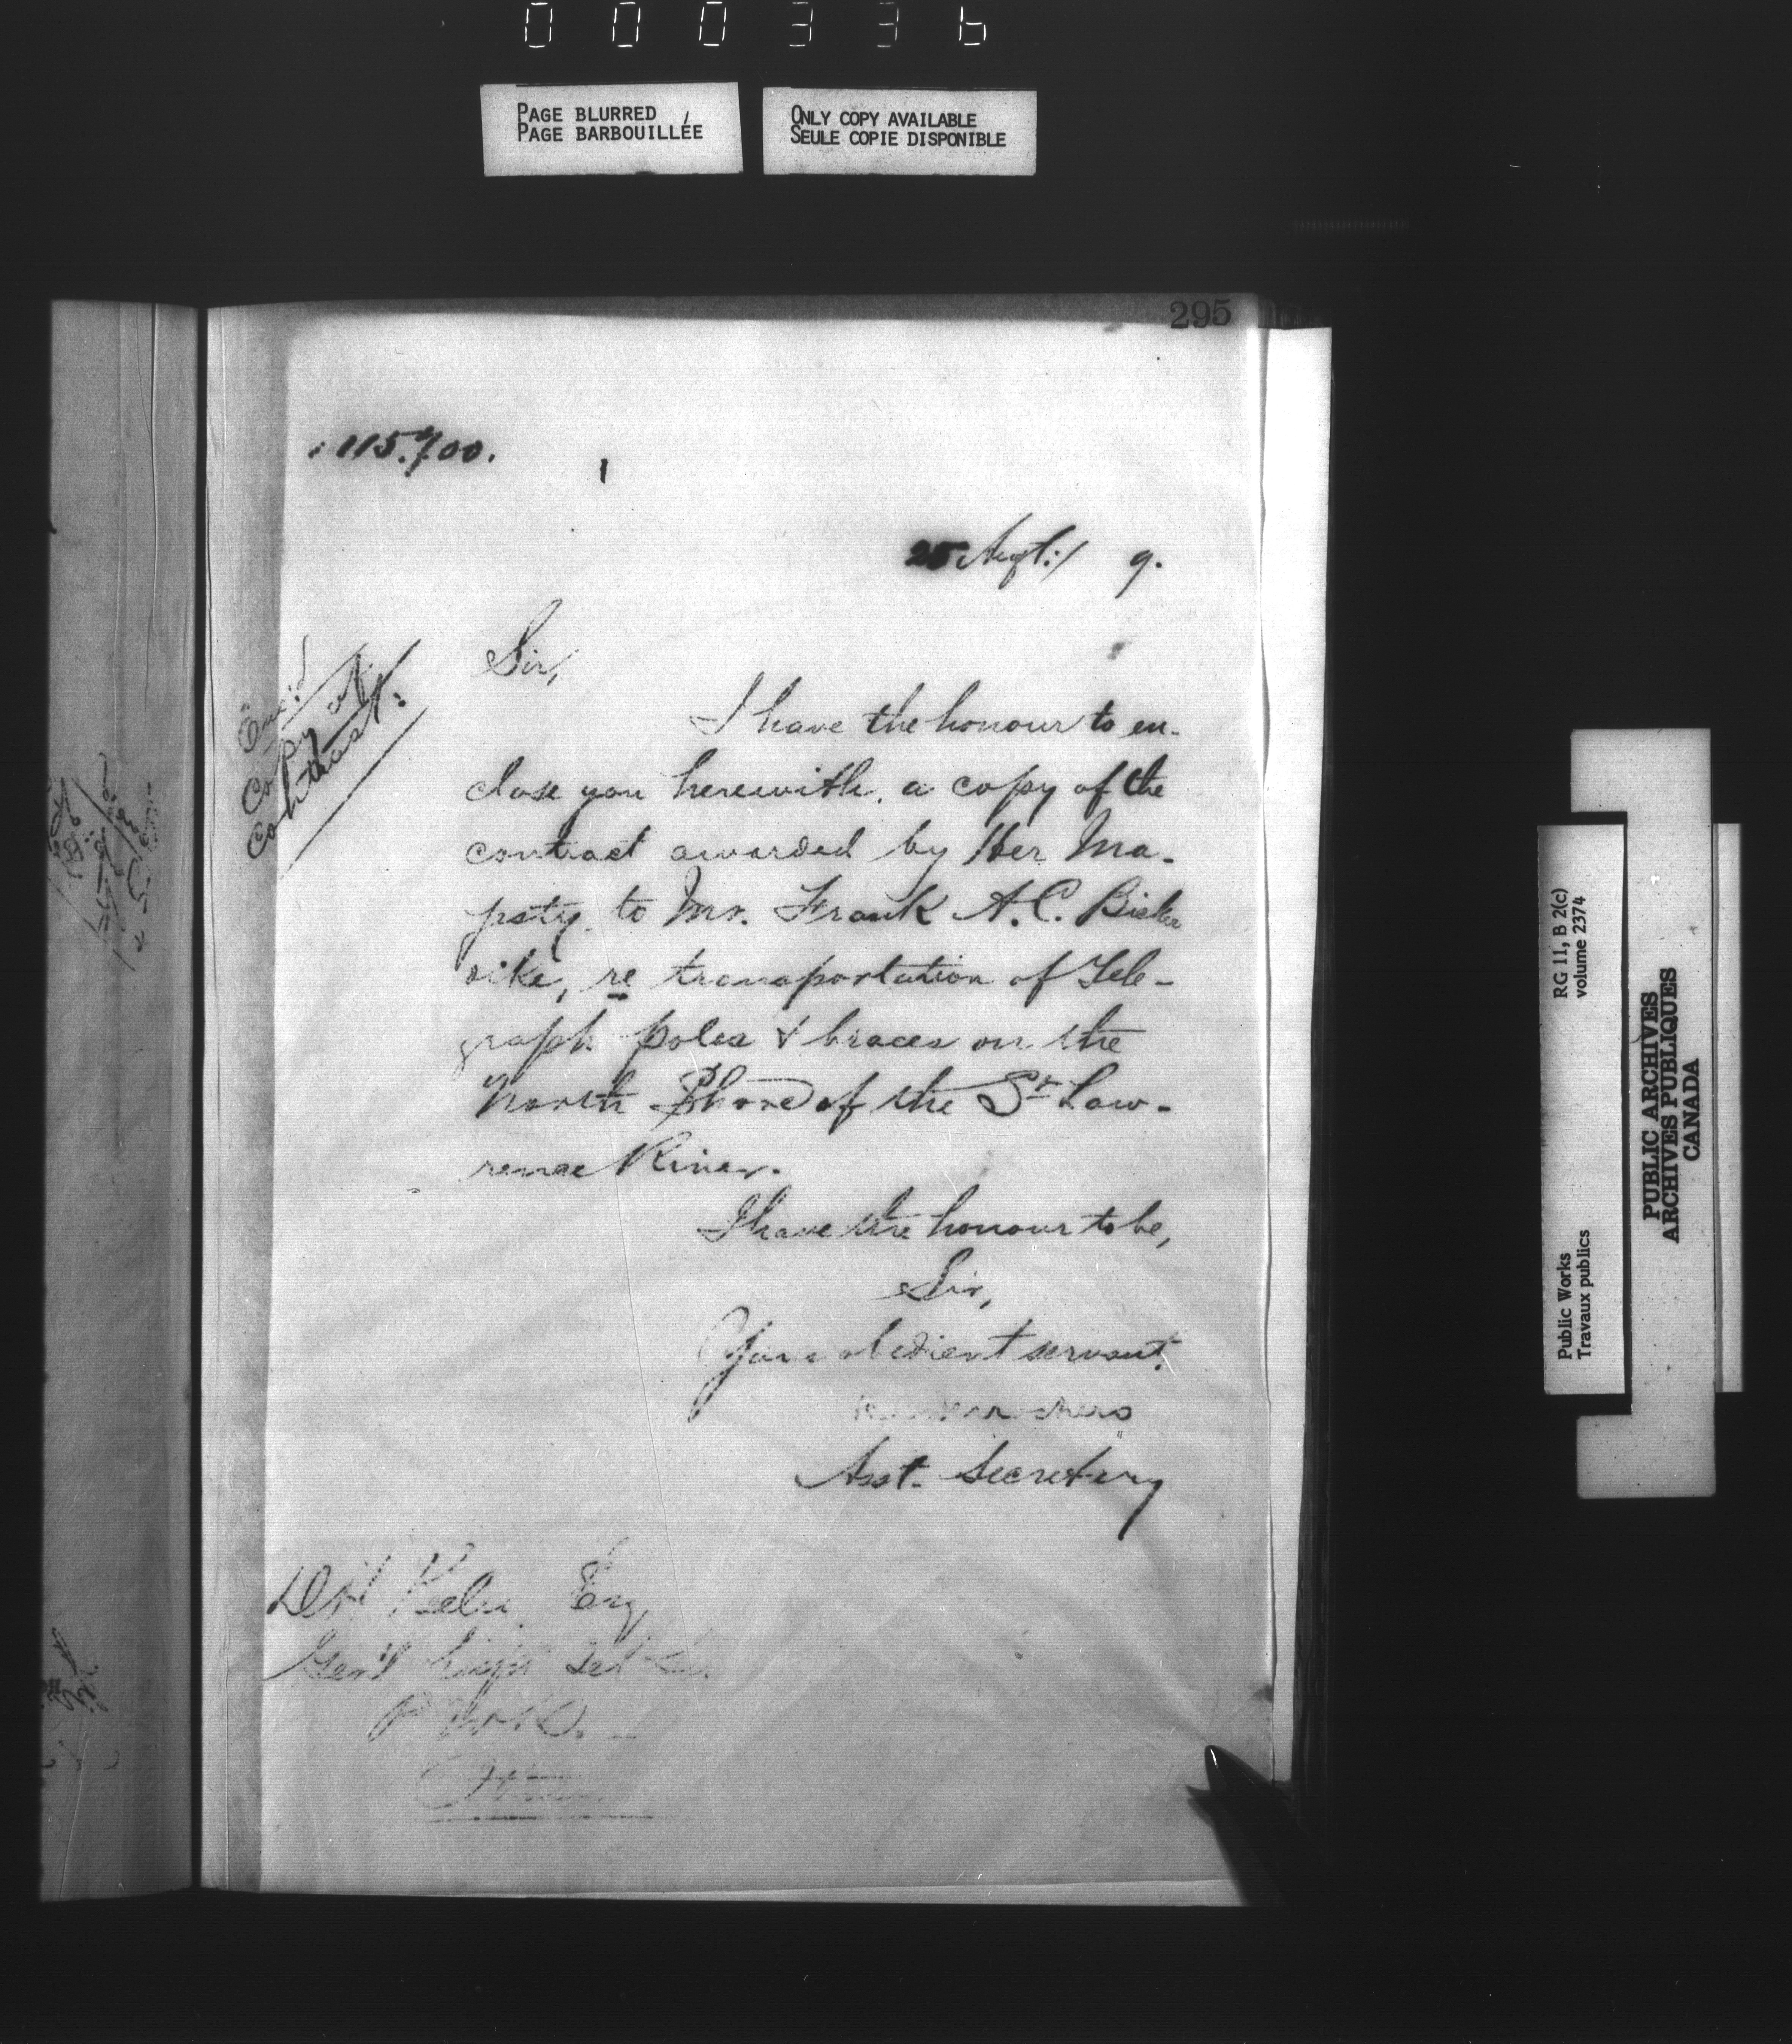 000336
PAGE BLURRED
PAGE BARBOUILLÉE
ONLY COPY AVAILABLE
SEULE COPIE DISPONIBLE
295
115.700.
25 9.
Sir,
Copy of
Contract.
I have the honour to en-
close you herewith, a copy of the
contract awarded by Her Ma-
jesty, to Mr. Frank A. C. Bicker
dike, re transportation of Tele-
graph poles & braces on the
North Shore of the St Law-
rence River.
I have the honour to be,
Sir,
Your obedient servant.
Asst. Secretary
Esq
Gen'l
RG 11, B 2(c)
volume 2374
Public Works
Travaux publics
PUBLIC ARCHIVES
ARCHIVES PUBLIQUES
CANADA